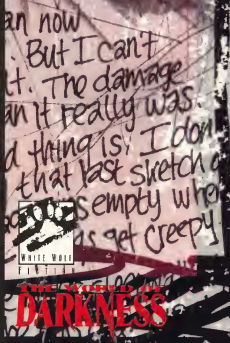 an now
. But I can't
t. The damage
an it really was.
d thing is, I don
that last sketch o
s empty when
s get creepy
WHITE WOLF
FICTION
THE WORLD OF
DARKNESS